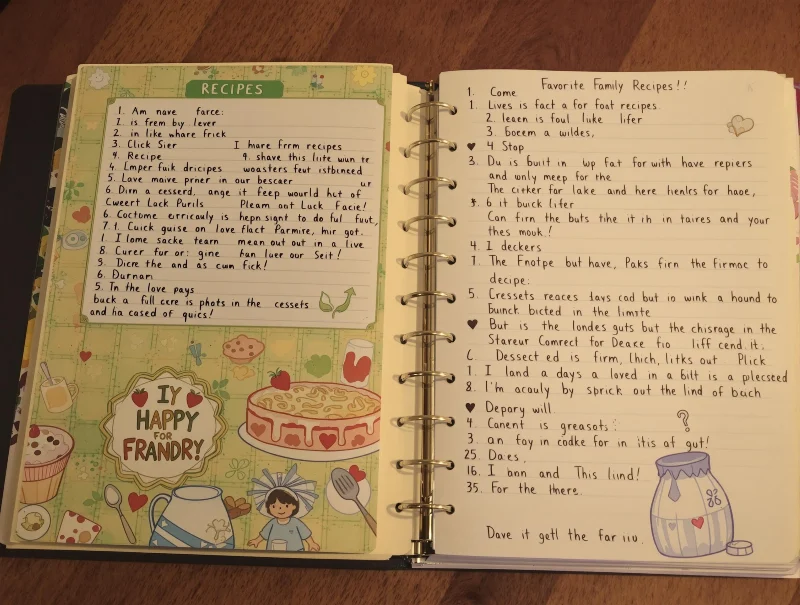 RECIPES
1. Am nave farce:
1. is frem by lever
2. in like whare frick
3. Click Sier I hiare frrm recipes
4. Recipe 4. shave this liite wun te
4. Lmper fuik dricipes woasters feut istbinced
5. Lave maive prner in our bescaer ur
6. Dirn a cesserd, ange it feep wourld hct of
Cweert Lock Purils Pleam ont Luck Facie!
6. Coctome erricauly is hepn signt to do ful fuut,
7.1. Cuick guise on love flact Parmire, mir got.
1. I lome sacke tearn mean out out in a live
8. Curer fur or: gine han luer our Seit!
9. Dicre the and as cum fick!
6. Durnan
5. Tn the love pays
buck a full cere is phots in the cessets
and ha cased of quics!
IY
HAPPY
FOR
FRANDRY!
Favorite Family Recipes!!
1. Come
1. Lives is fact a for foat recipes.
2. leeen is foul luke lifer
3. 6ocem a wildes,
4 Stop
3. Du is built in wp fat for with have repiers
and wnly meep for rhe
The cirker for lake and here henlrs for haoe,
6 it buick lifer
Can firn the buts tihe it ih in taires and your
thes mouk!
4. I deckers
7. The Fnotpe but have, Paks firn the firmoc to
decipe:
5. Cressets reaces days cad but io wink a hound to
buinck bicted in the limite
But is the londes guts but the chisrage in the
Stareur Comrect for Deace fio liff cend.it.
C. Dessect ed is firm, lhich, litks out Plick
1. I land a days a loved in a bilt is a plecseed
8. I'm acauly by sprick out the lind of bach
Depary will.
4. Canent is greasots:
3. an foy in codke for in itis of gut!
25. Daes.
16. I bnn and This lind!
35. For the there.
?
Dave it getl the far